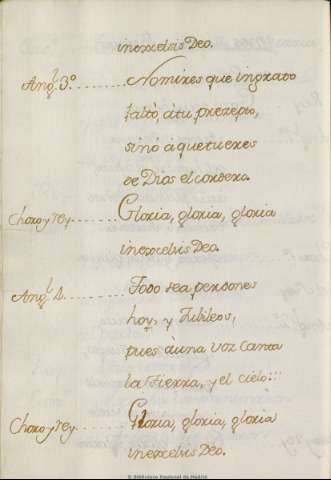 inexcelsis Deo.
Angl. 3.º ........ No mires que ingrato
faltò, à tu precepto,
sinò à que tu eres
de Dios el cordero.
Choro y rey ........ Gloria, gloria, gloria
inexcelsis Deo.
Angl. 4. ........ Todo sea perdones
hoy, y Jubileos,
pues à una voz canta
la Tierra, y el cielo:::
Choro y rey ........ Gloria, gloria, gloria
inexcelsis Deo.
© Biblioteca Nacional de Madrid